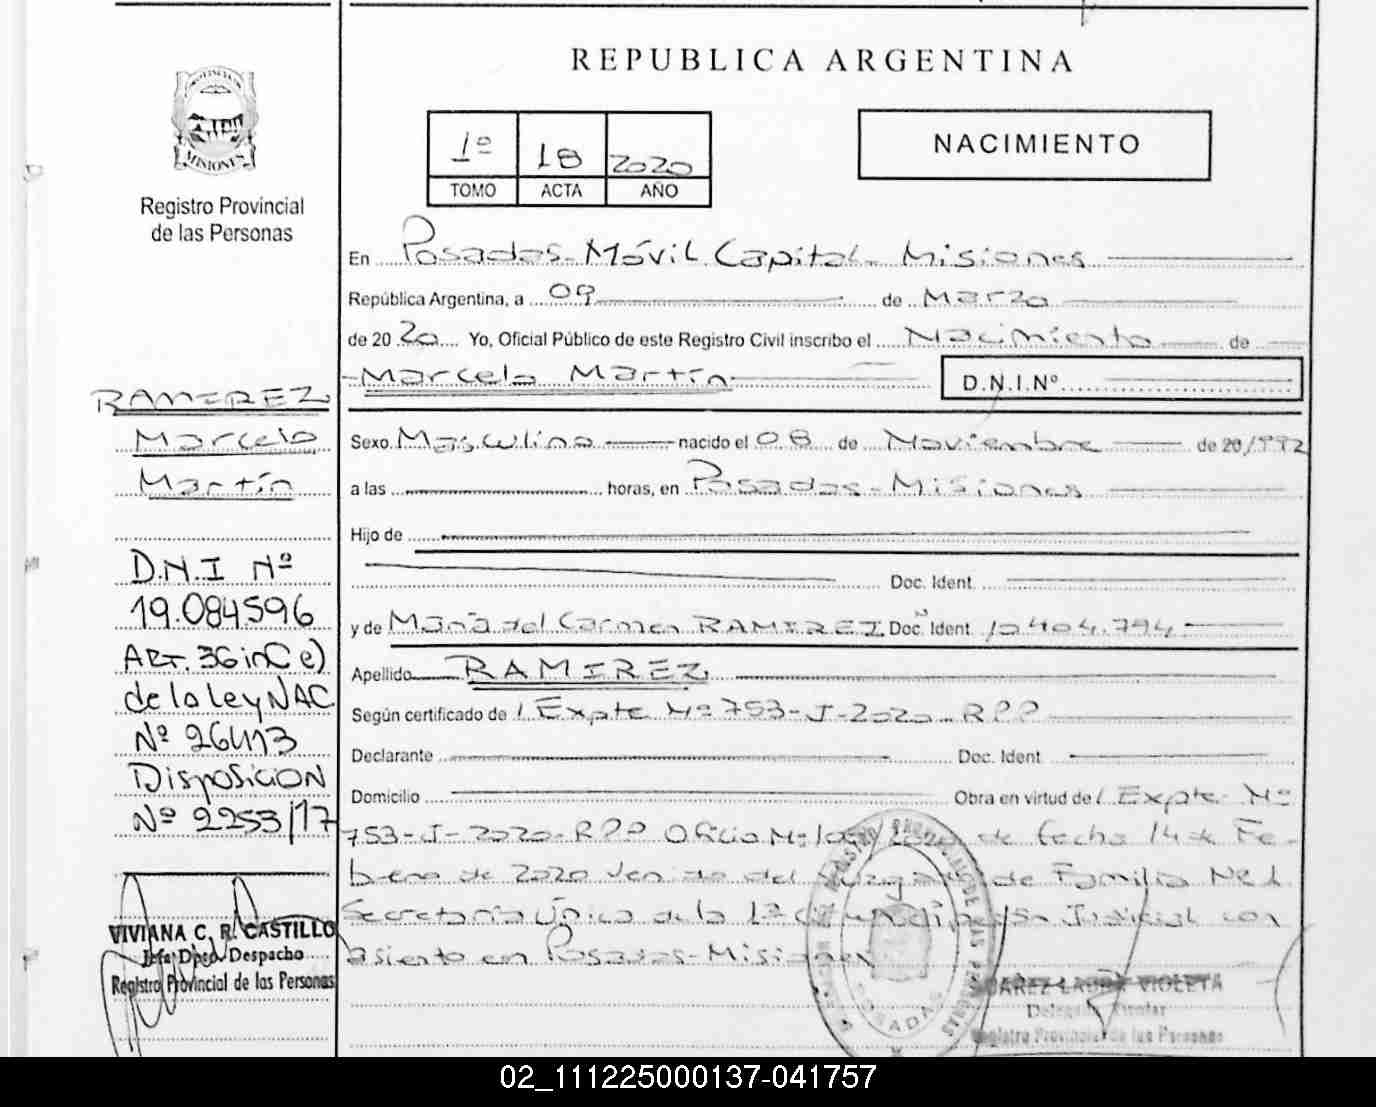 REPUBLICA ARGENTINA
PROVINCIA DE
MISIONES
Registro Provincial
de las Personas
1º 18 2020
TOMO ACTA AÑO
NACIMIENTO
En Posadas - Móvil Capital - Misiones
República Argentina, a 09 de Marzo
de 20 20 Yo, Oficial Público de este Registro Civil inscribo el Nacimiento de
Marcelo Martín
D.N.I.Nº
RAMIREZ
Marcelo
Martín
D.N.I Nº
19.084.596
ART. 36 inC e)
de la Ley NAC
Nº 26413
Disposicion
Nº 2253/17
VIVIANA C. R. CASTILLO
Jefa Dpto. Despacho
Registro Provincial de las Personas
Sexo Masculino nacido el 08 de Noviembre de 20/1992
a las horas, en Posadas - Misiones
Hijo de
Doc. Ident.
y de María del Carmen RAMIREZ Doc. Ident. Nº 10.404.794
Apellido RAMIREZ
Según certificado de / Expte Nº 753-J-2020 RPP
Declarante Doc. Ident.
Domicilio Obra en virtud de / Expte Nº
753-J-2020-RPP Oficio Nº de fecha 14 de Fe-
brero de 2020 venido del Juzgado de Familia Nº 1
Secretaría Única de la 1ª Circunscripción Judicial con
asiento en Posadas - Misiones
SUAREZ LAURA VIOLETA
Delegada Titular
Registro Provincial de las Personas
POSADAS
02_111225000137-041757